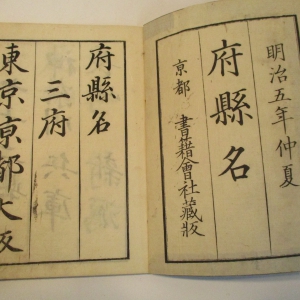 明治五年仲夏
府縣名
京都 書籍會社藏版
府縣名
三府
東京京都大阪